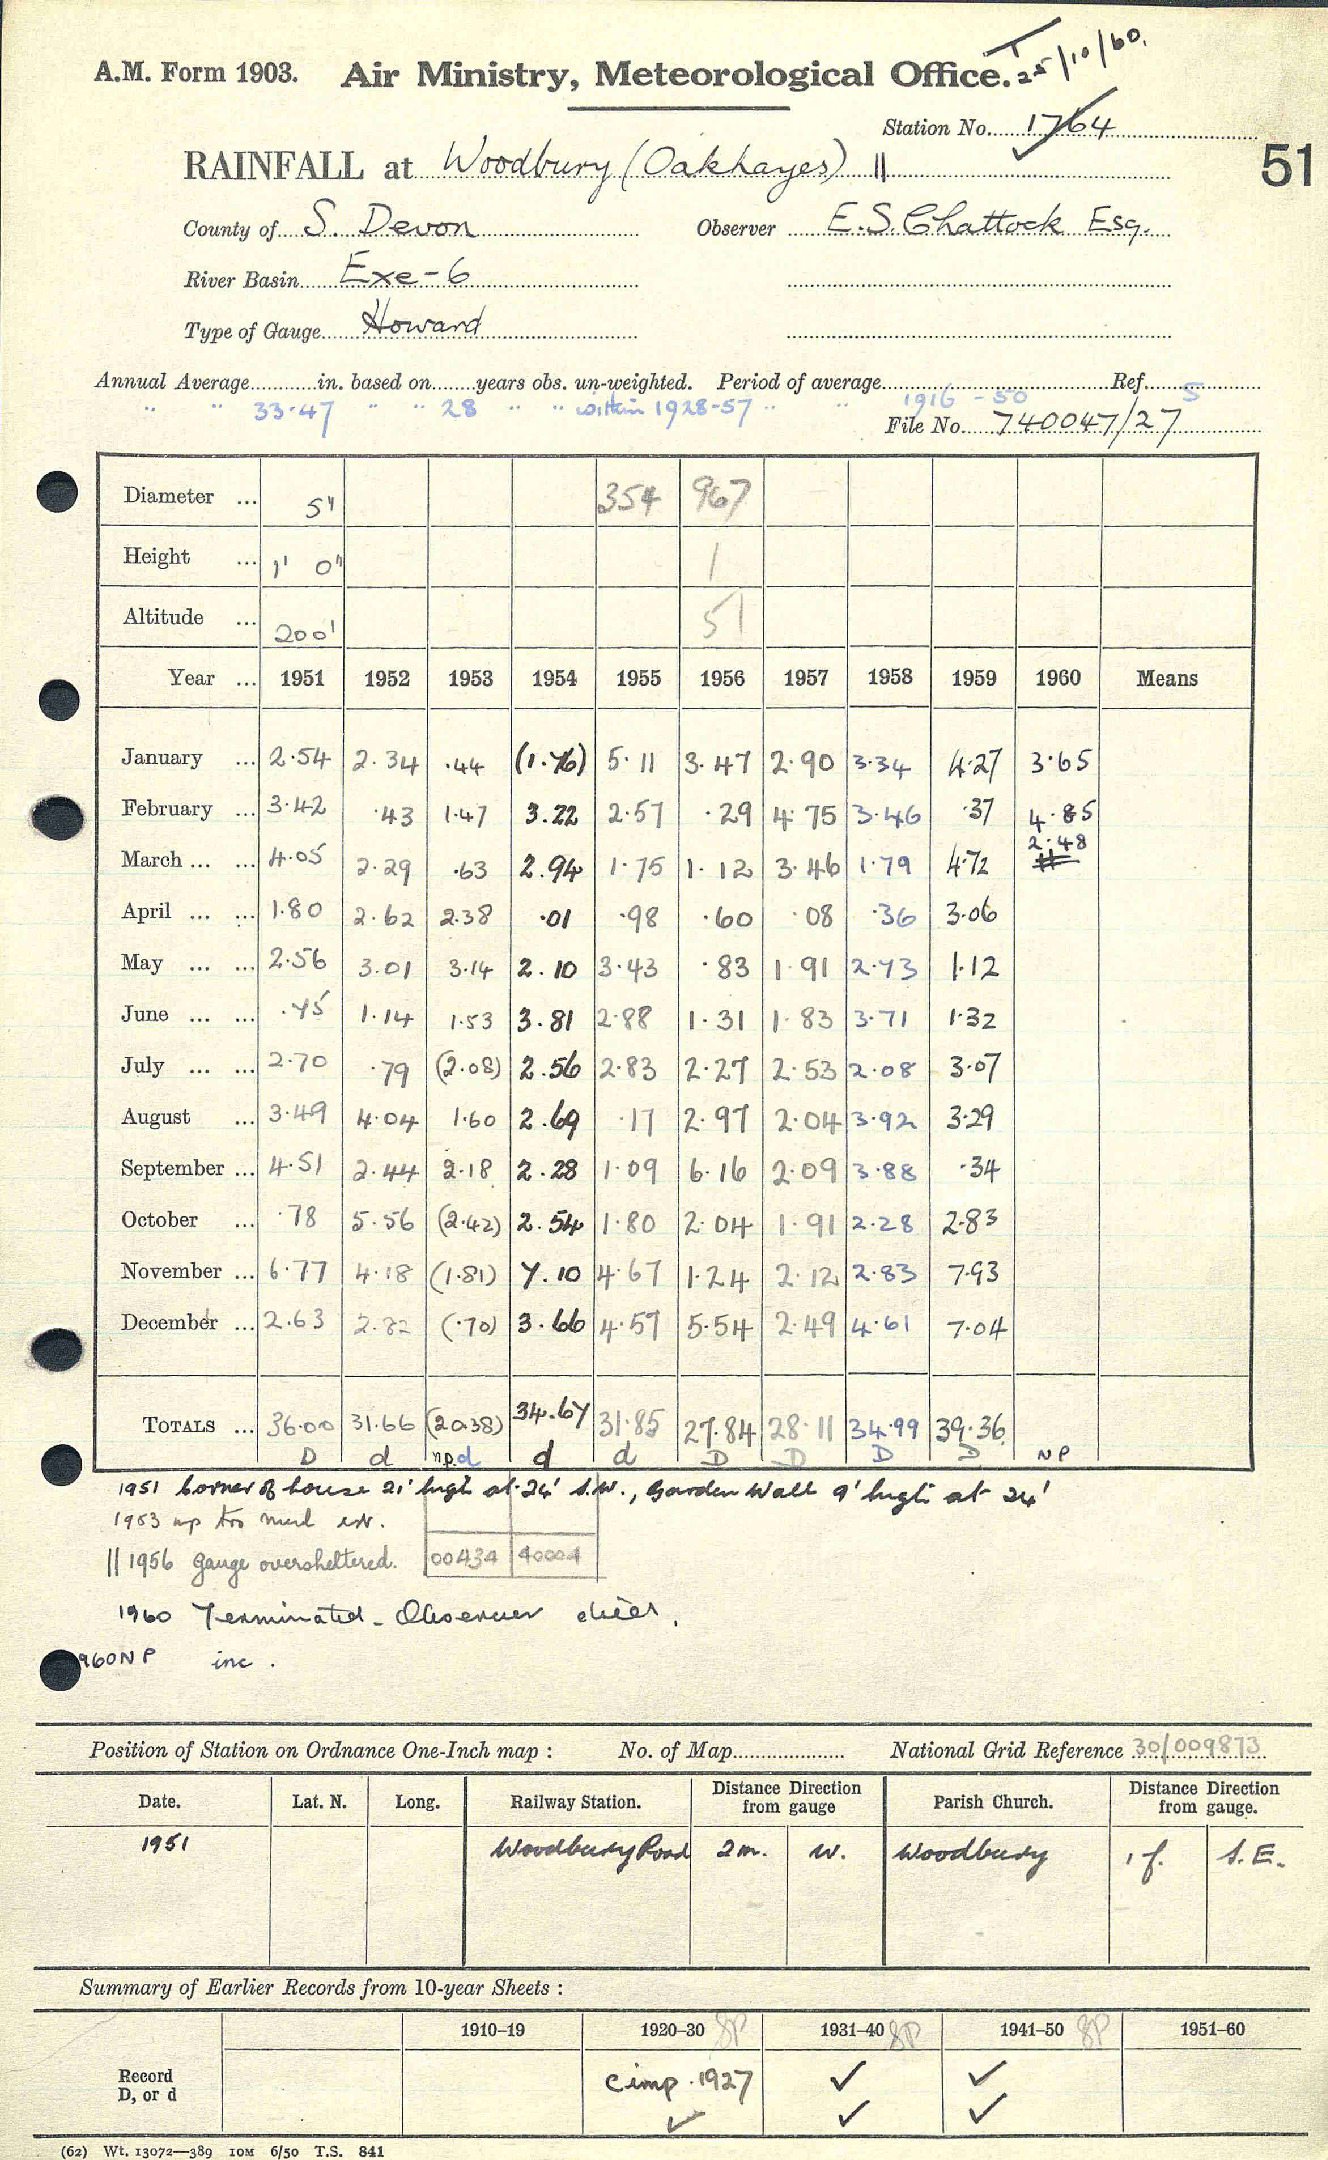 T 25/10/60.
A.M. Form 1903. Air Ministry, Meteorological Office.
Station No. 1764
51
RAINFALL at Woodbury (Oakhayes) ||
County of S. Devon Observer E.S. Chattock Esq.
River Basin Exe-6
Type of Gauge Howard
Annual Average in. based on years obs. un-weighted. Period of average Ref.
" " 33.47 " " 28 " " within 1928-57 " " 1916-50 5
File No. 740047/27
Diameter ... 5" 354 967
Height ... 1' 0" 1
Altitude ... 200' 51
Year ... 1951 1952 1953 1954 1955 1956 1957 1958 1959 1960 Means
January ... 2.54 2.34 .44 (1.76) 5.11 3.47 2.90 3.34 4.27 3.65
February ... 3.42 .43 1.47 3.22 2.57 .29 4.75 3.46 .37 4.85
March ... ... 4.05 2.29 .63 2.94 1.75 1.12 3.46 1.79 4.72 2.48
April ... ... 1.80 2.62 2.38 .01 .98 .60 .08 .36 3.06
May ... ... 2.56 3.01 3.14 2.10 3.43 .83 1.91 2.73 1.12
June ... ... .75 1.14 1.53 3.81 2.88 1.31 1.83 3.71 1.32
July ... ... 2.70 .79 (2.08) 2.56 2.83 2.27 2.53 2.08 3.07
August ... 3.49 4.04 1.60 2.69 .17 2.97 2.04 3.92 3.29
September ... 4.51 2.44 2.18 2.28 1.09 6.16 2.09 3.88 .34
October ... .78 5.56 (2.42) 2.54 1.80 2.04 1.91 2.28 2.83
November ... 6.77 4.18 (1.81) 7.10 4.67 1.24 2.12 2.83 7.93
December ... 2.63 2.82 (.70) 3.66 4.57 5.54 2.49 4.61 7.04
TOTALS ... 36.00 31.66 (20.38) 34.67 31.85 27.84 28.11 34.99 39.36
D d np.d d d D D D D NP
1951 Corner of house 21' high at 24' S.W., Garden Wall 9' high at 24'
1953 np too much est.
|| 1956 Gauge oversheltered. 00434 40004
1960 Terminated - Observer died.
1960 NP inc.
Position of Station on Ordnance One-Inch map : No. of Map National Grid Reference 30/009873
Date. Lat. N. Long. Railway Station. Distance Direction from gauge Parish Church. Distance Direction from gauge.
1951 Woodbury Road 2m. W. Woodbury 1 f. S.E.
Summary of Earlier Records from 10-year Sheets :
1910-19 1920-30 8P 1931-40 8P 1941-50 8P 1951-60
Record D, or d Comp. 1927 ✓ ✓
✓ ✓ ✓
(62) Wt. 13072—389 10M 6/50 T.S. 841